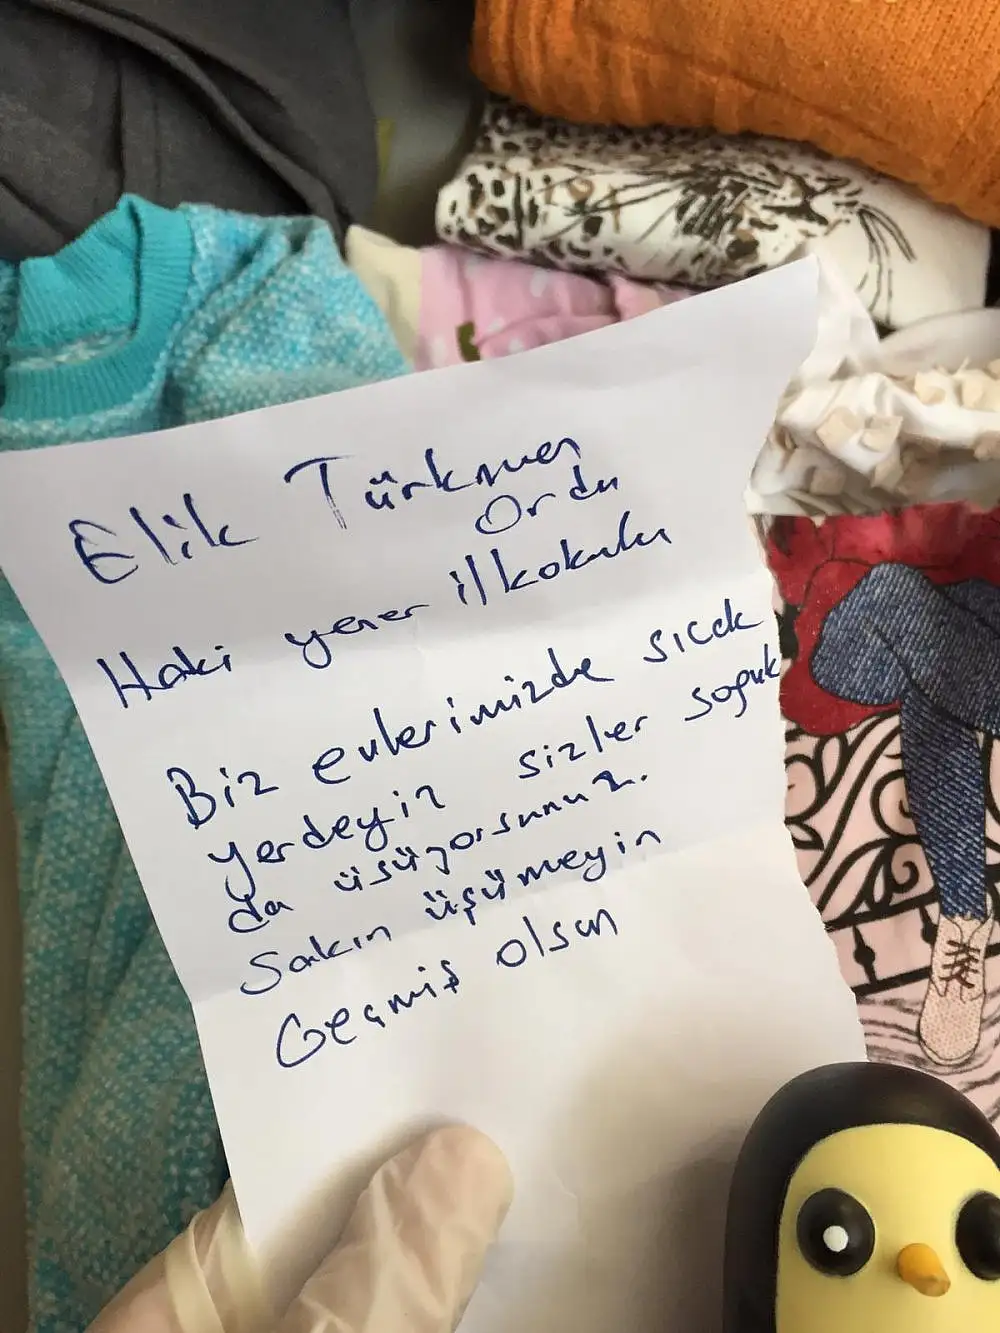 Elik Türkmen
Ordu
Haki yener ilkokulu
Biz evlerimizde sıcak
yerdeyiz sizler soğuk
da üsüyorsunuz.
Sakın üşümeyin
Geçmiş olsun